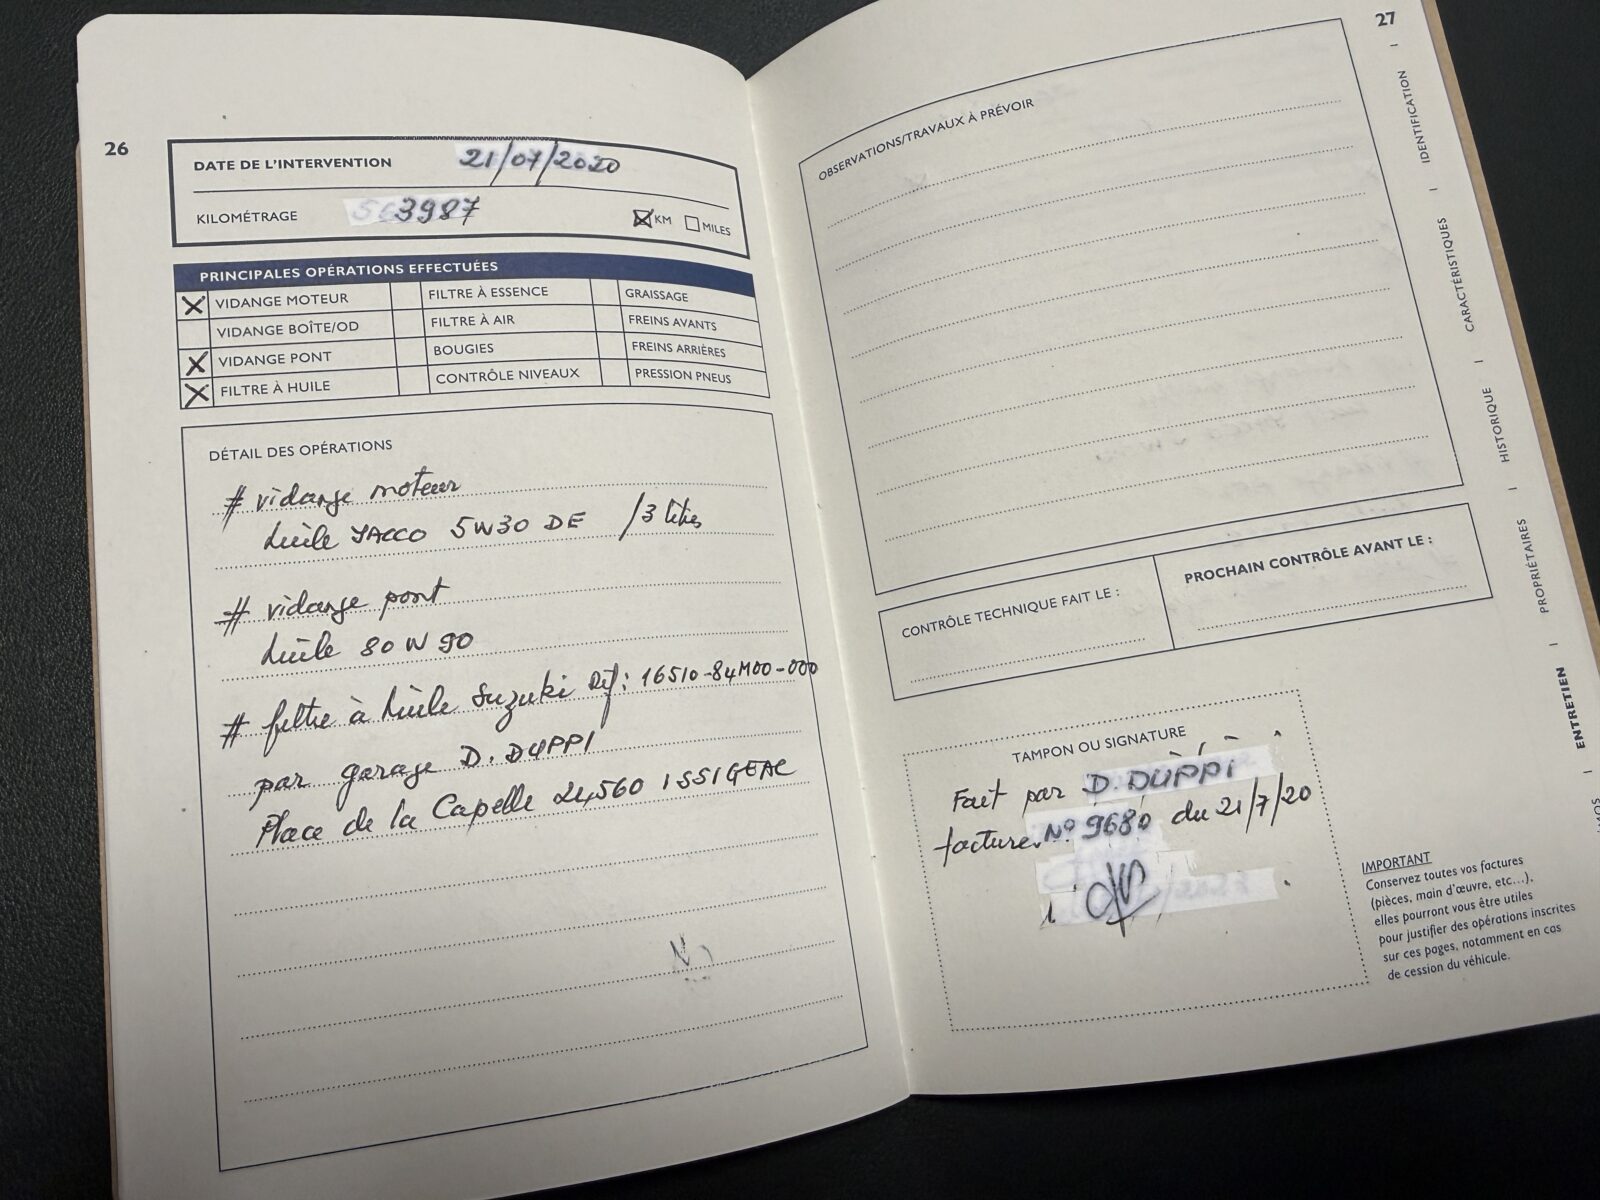 26
DATE DE L'INTERVENTION 21/07/2020
KILOMÉTRAGE 3987 KM MILES
PRINCIPALES OPÉRATIONS EFFECTUÉES
X VIDANGE MOTEUR FILTRE À ESSENCE GRAISSAGE
VIDANGE BOÎTE/OD FILTRE À AIR FREINS AVANTS
X VIDANGE PONT BOUGIES FREINS ARRIÈRES
X FILTRE À HUILE CONTRÔLE NIVEAUX PRESSION PNEUS
DÉTAIL DES OPÉRATIONS
# vidange moteur
huile YACCO 5W30 DE /3 litres
# vidange pont
huile 80W90
# filtre à huile Suzuki Réf: 16510-84M00-000
par garage D. DUPPI
Place de la Capelle 24560 ISSIGEAC
27
OBSERVATIONS/TRAVAUX À PRÉVOIR
CONTRÔLE TECHNIQUE FAIT LE :
PROCHAIN CONTRÔLE AVANT LE :
TAMPON OU SIGNATURE
Fait par D. DUPPI
facture N° 9680 du 21/7/20
IMPORTANT
Conservez toutes vos factures
(pièces, main d'œuvre, etc...),
elles pourront vous être utiles
pour justifier des opérations inscrites
sur ces pages, notamment en cas
de cession du véhicule.
IDENTIFICATION
CARACTÉRISTIQUES
HISTORIQUE
PROPRIÉTAIRES
ENTRETIEN